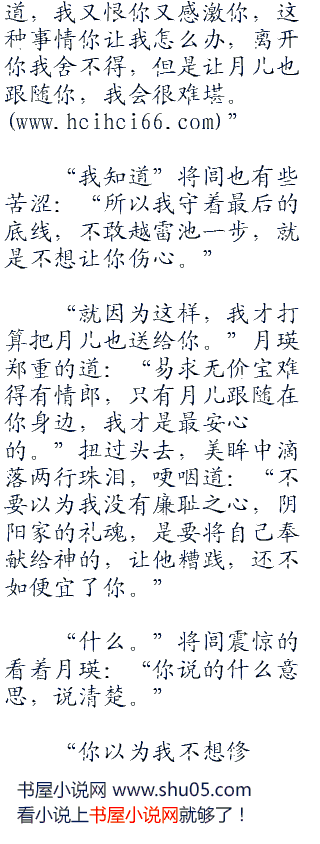 道，我又恨你又感激你，这
种事情你让我怎么办，离开
你我舍不得，但是让月儿也
跟随你，我会很难堪。
(www.hcihci66.com)”
“我知道”将闾也有些
苦涩：“所以我守着最后的
底线，不敢越雷池一步，就
是不想让你伤心。”
“就因为这样，我才打
算把月儿也送给你。”月瑛
郑重的道：“易求无价宝难
得有情郎，只有月儿跟随在
你身边，我才是最安心
的。”扭过头去，美眸中滴
落两行珠泪，哽咽道：“不
要以为我没有廉耻之心，阴
阳家的礼魂，是要将自己奉
献给神的，让他糟践，还不
如便宜了你。”
“什么。”将闾震惊的
看着月瑛：“你说的什么意
思，说清楚。”
“你以为我不想修
书屋小说网 www.shu05.com
看小说上书屋小说网就够了！